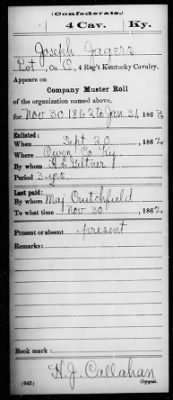 (Confederate.)
4 Cav. Ky.
Joseph Jagers
Co. C, 4 Reg't Kentucky Cavalry.
Appears on
Company Muster Roll
of the organization named above,
for Nov 30 1862 to Jan 31, 1863
Enlisted:
When Sept 30, 1862
Where Owen Co Ky
By whom
Period 3 yrs
Last paid:
By whom Maj Crutchfield
To what time Nov 30, 1862
Present or absent present
Remarks:
Book mark:
H. J. Callahan
(642) Copyist.